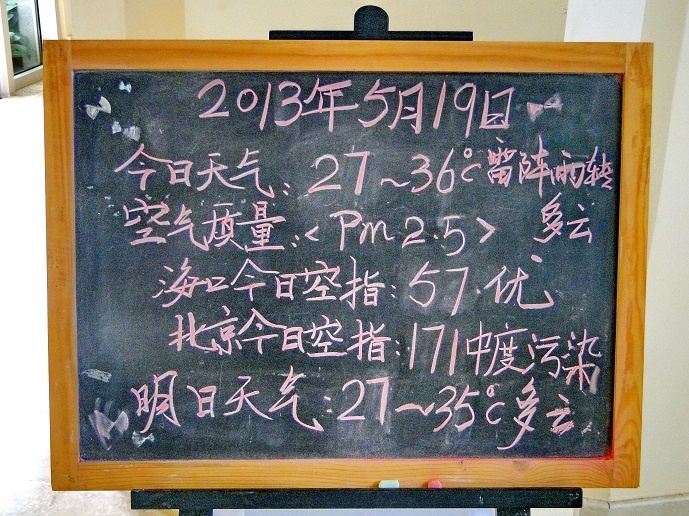 2013年5月19日
今日天气:27~36℃雷阵雨转
空气质量:<Pm2.5> 多云
海口今日空指:57.优
北京今日空指:171中度污染
明日天气:27~35℃多云